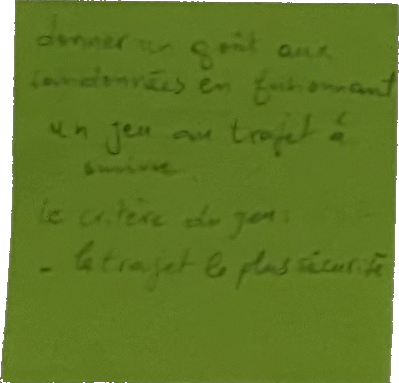 donner un goût aux
randonnées en fusionnant
un jeu au trajet à
suivre
le critère du jeu :
- le trajet le plus sécurité